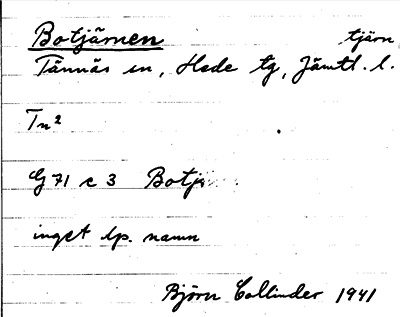 Botjärnen tjärn
Tännäs sn, Hede tg, Jämtl. l.
Tn²
G 71 c 3 Botjä
inget lp. namn
Björn Collinder 1941